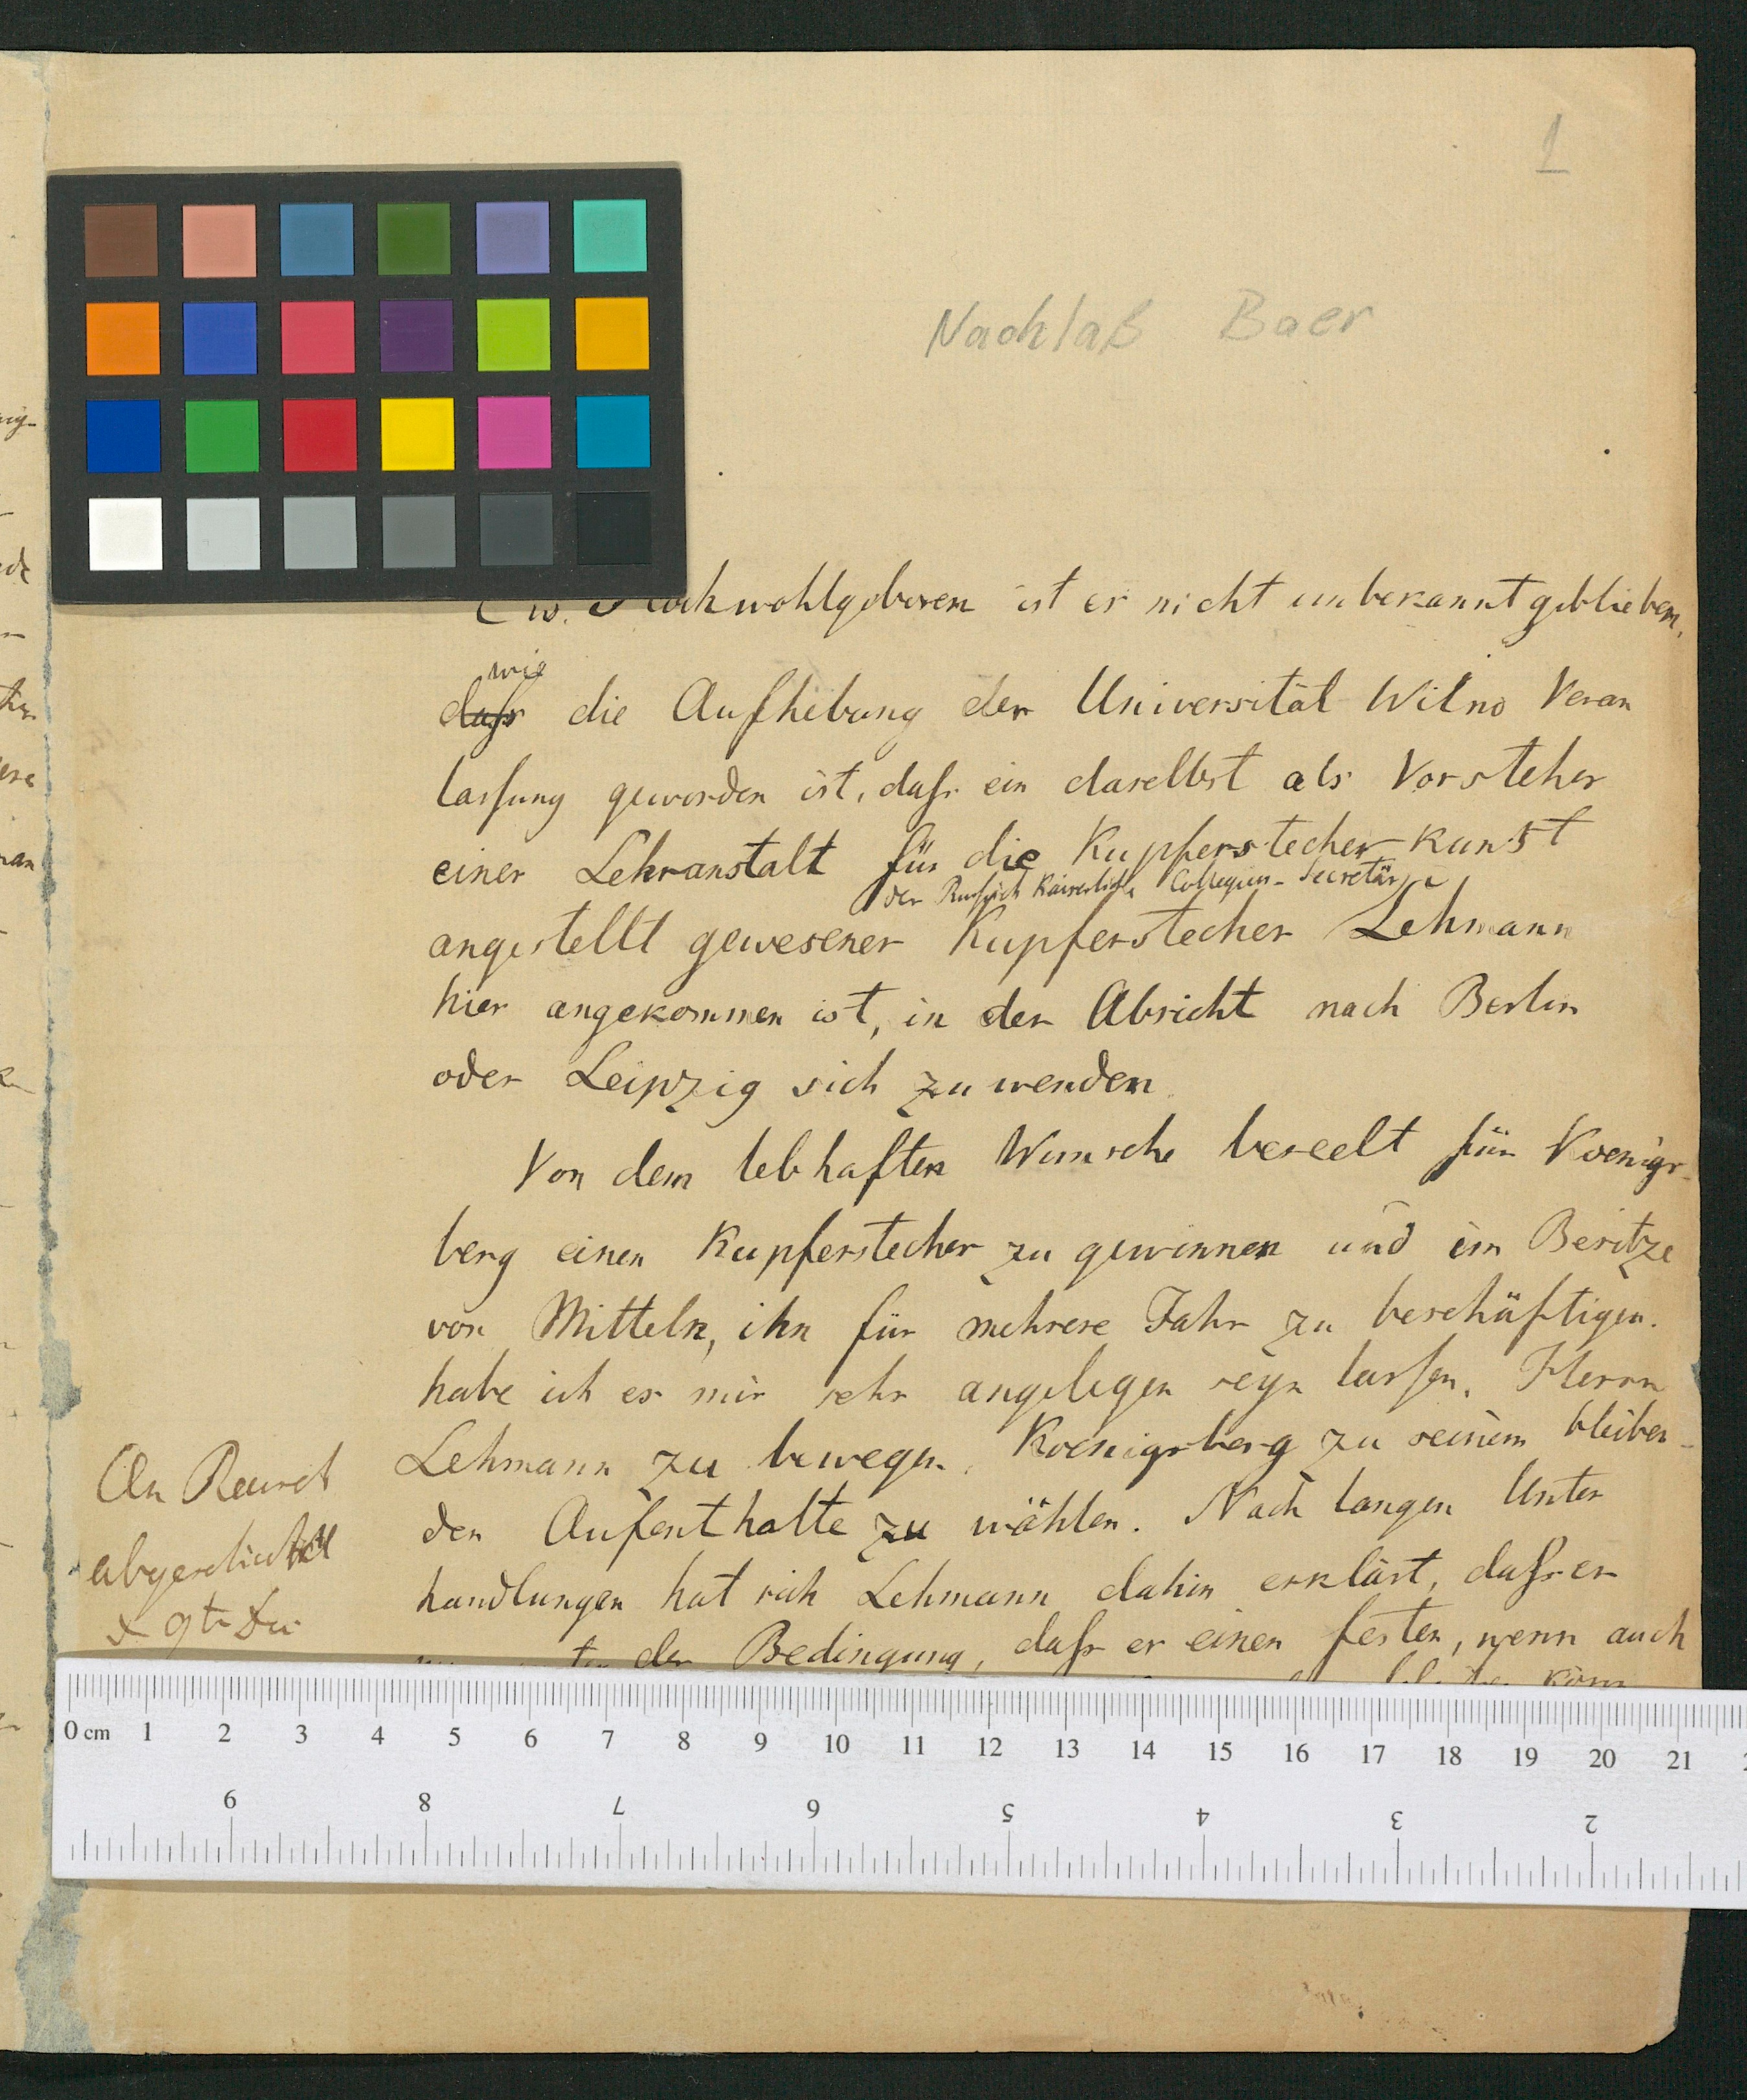 1
Nachlaß Baer
Ew. Hochwohlgeboren ist es nicht unbekannt geblieben,
wie
daſs die Aufhebung der Universität Wilno Veran
laſsung geworden ist, daſs ein daselbst als Vorsteher
einer Lehranstalt für die Kupferstecher-Kunst
der Ruſsisch Kaiserliche Collegien-Secretär
angestellt gewesener Kupferstecher Lehmann
hier angekommen ist, in der Absicht nach Berlin
oder Leipzig sich zu wenden.
Von dem lebhaften Wunsche beseelt für Koenigs-
berg einen Kupferstecher zu gewinnen und im Besitze
von Mitteln, ihn für mehrere Jahr zu beschäftigen.
habe ich es mir sehr angelegen seyn laſsen, Herrn
Lehmann zu bewegen, Koenigsberg zu seinem bleiben-
den Aufenthalte zu wählen. Nach langen Unter
handlungen hat sich Lehmann dahin erklärt, daſs er
der Bedingung, daſs er einen festen, wenn auch
An
abgeschickt
0 cm 1 2 3 4 5 6 7 8 9 10 11 12 13 14 15 16 17 18 19 20 21
9 8 7 6 5 4 3 2